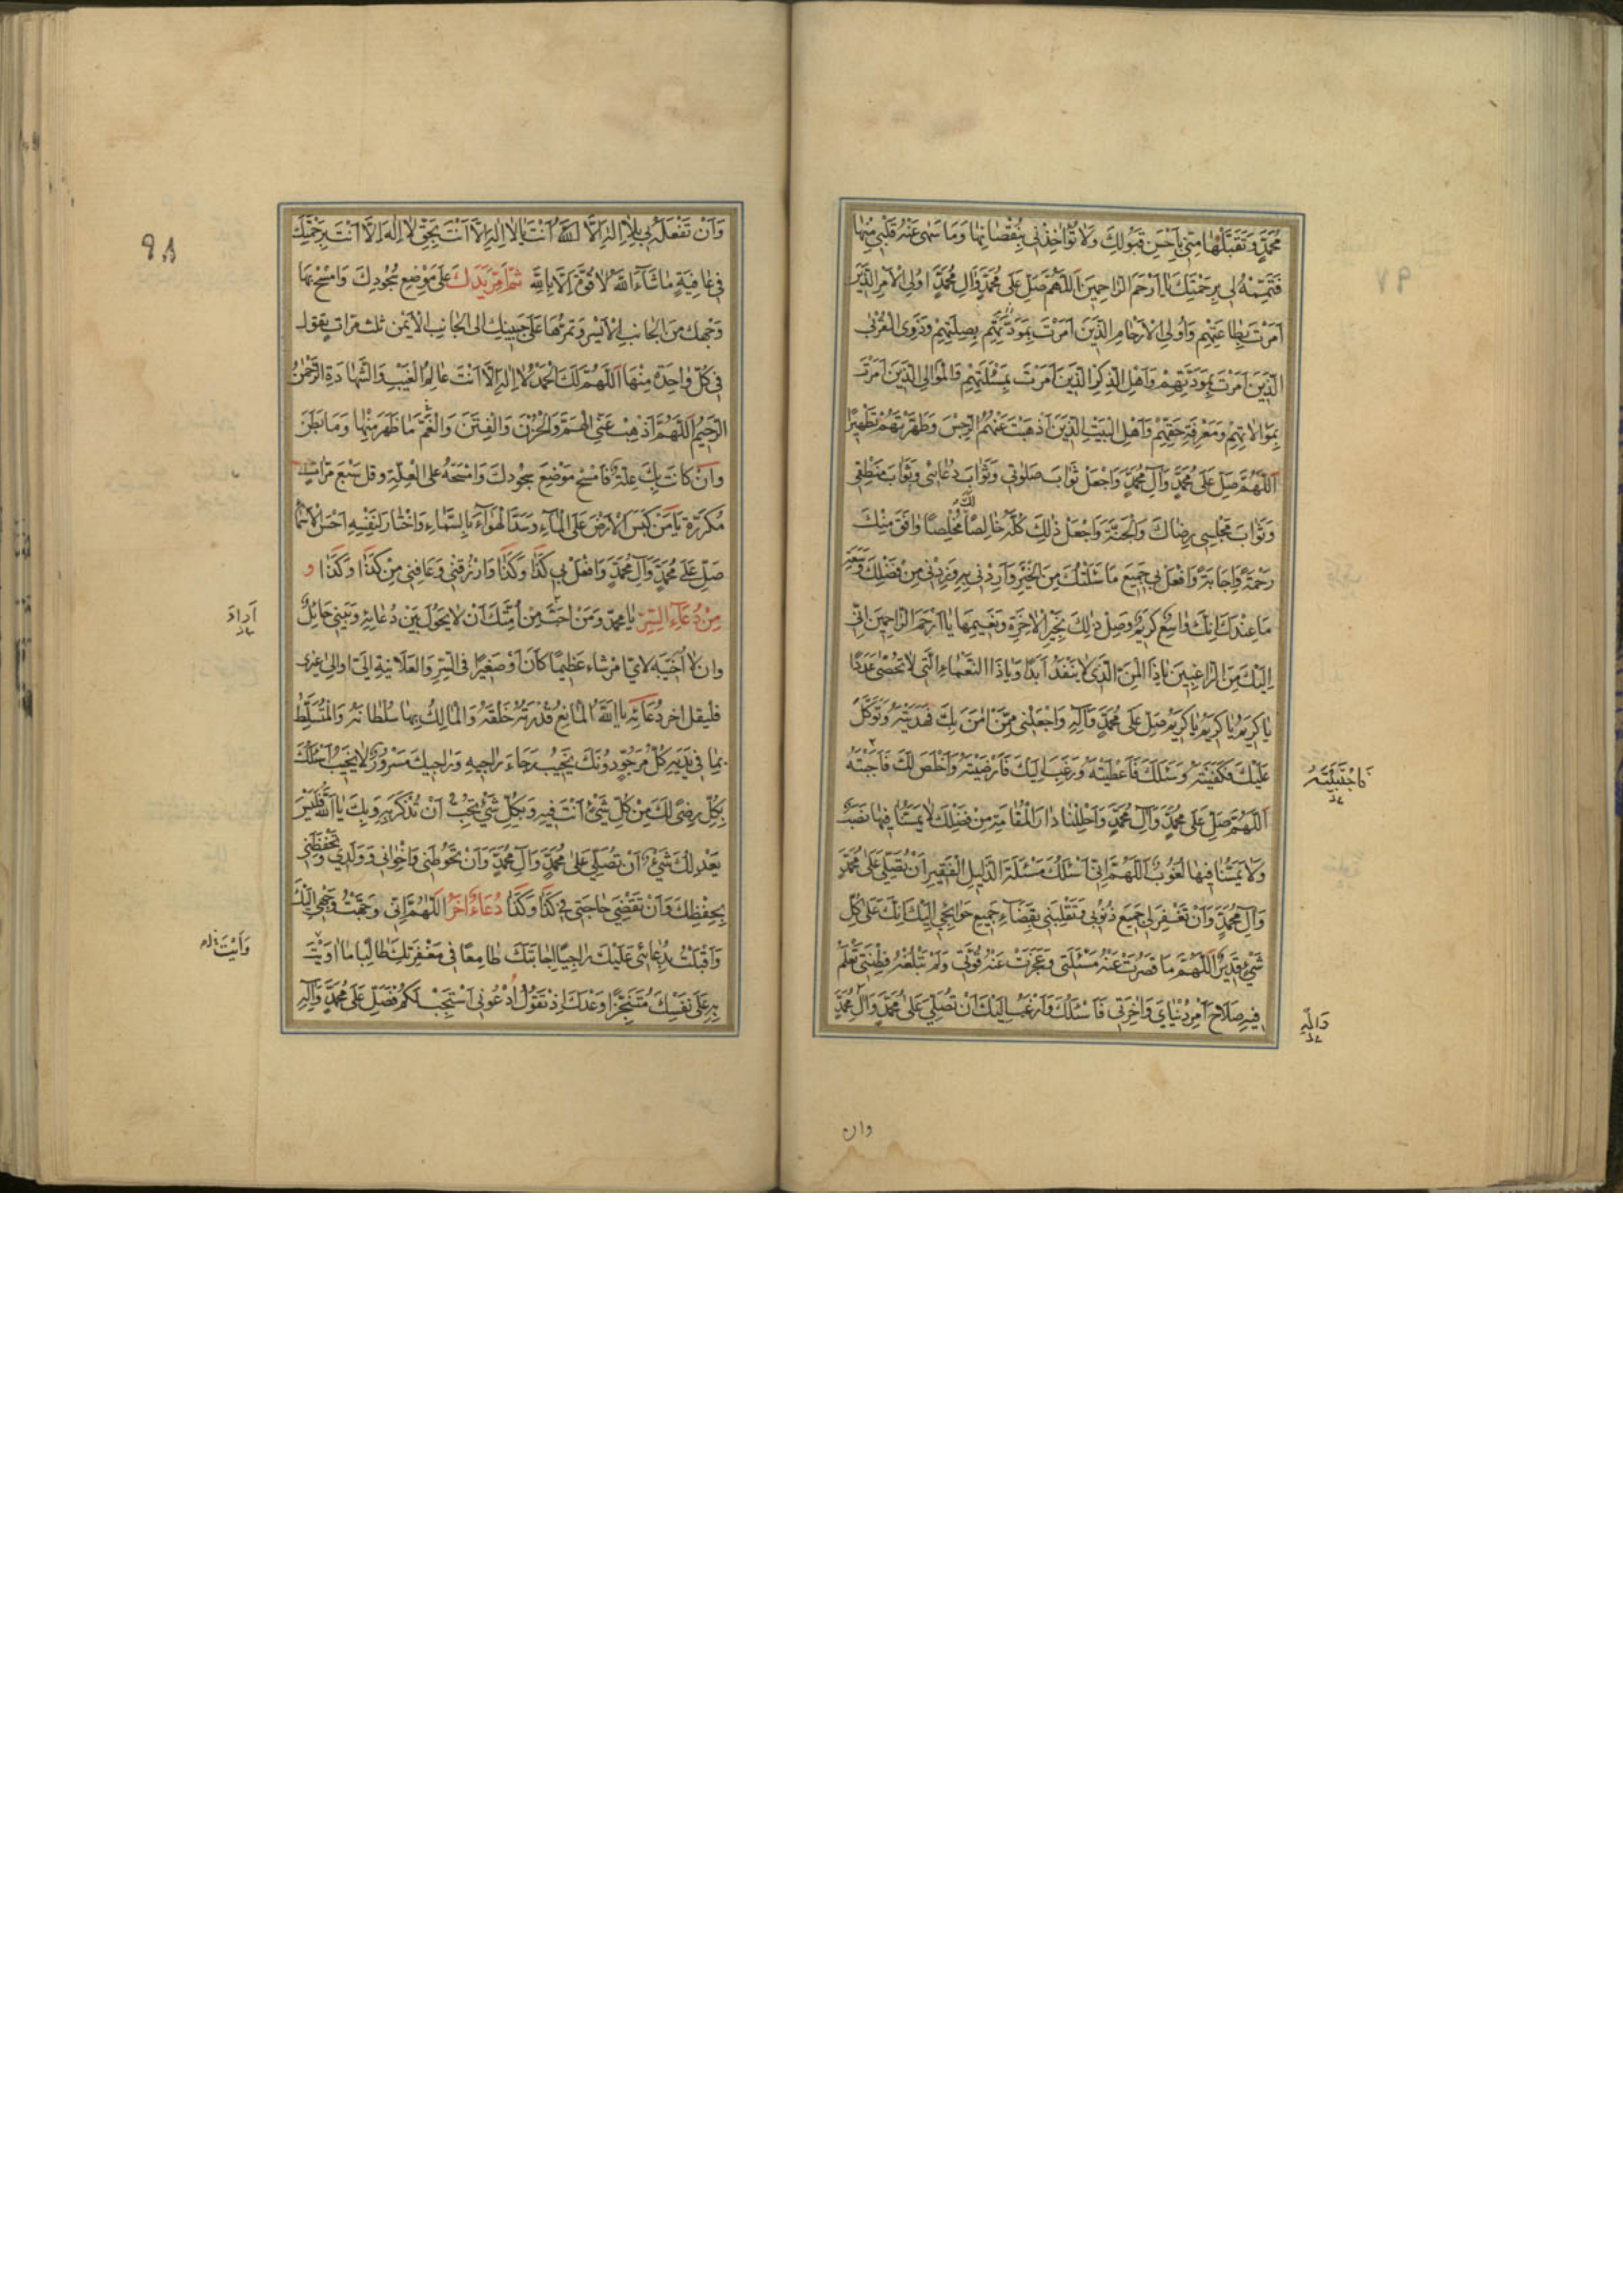 ٩٧
مُحَمَّدٍ وَتَقَبَّلْهَا مِنِّي بِأَحْسَنِ قَبُولِكَ وَلَا تُؤَاخِذْنِي بِنُقْصَانِهَا وَمَا سَهَى عَنْهُ قَلْبِي مِنْهَا
فَتَمِّمْهُ لِي بِرَحْمَتِكَ يَا أَرْحَمَ الرَّاحِمِينَ اَللَّهُمَّ صَلِّ عَلَى مُحَمَّدٍ وَآلِ مُحَمَّدٍ أُولِي الْأَمْرِ الَّذِينَ
أَمَرْتَ بِطَاعَتِهِمْ وَأُولِي الْأَرْحَامِ الَّذِينَ أَمَرْتَ بِصِلَتِهِمْ وَذَوِي الْقُرْبَى
الَّذِينَ أَمَرْتَ بِمَوَدَّتِهِمْ وَأَهْلِ الذِّكْرِ الَّذِينَ أَمَرْتَ بِمَسْئَلَتِهِمْ وَالْمَوَالِي الَّذِينَ أَمَرْتَ
بِمُوَالَاتِهِمْ وَمَعْرِفَةِ حَقِّهِمْ وَأَهْلِ الْبَيْتِ الَّذِينَ أَذْهَبْتَ عَنْهُمُ الرِّجْسَ وَطَهَّرْتَهُمْ تَطْهِيرًا
اَللَّهُمَّ صَلِّ عَلَى مُحَمَّدٍ وَآلِ مُحَمَّدٍ وَاجْعَلْ ثَوَابَ صَلَوتِي وَثَوَابَ دُعَائِي وَثَوَابَ مَنْطِقِي
وَثَوَابَ مَجْلِسِي رِضَاكَ وَالْجَنَّةَ وَاجْعَلْ ذَلِكَ كُلَّهُ خَالِصًا مُخْلِصًا وَافَقَ مِنْكَ
رَحْمَةً وَإِجَابَةً وَافْعَلْ بِي جَمِيعَ مَا سَئَلْتُكَ مِنَ الْخَيْرِ وَزِدْنِي مِنْ فَضْلِكَ وَسَعَةِ
مَا عِنْدَكَ إِنَّكَ وَاسِعٌ كَرِيمٌ وَصِلْ ذَلِكَ بِخَيْرِ الْآخِرَةِ وَنَعِيمِهَا يَا أَرْحَمَ الرَّاحِمِينَ إِنِّي
إِلَيْكَ مِنَ الرَّاغِبِينَ يَا ذَا الْمَنِّ الَّذِي لَا يَنْفَدُ أَبَدًا وَيَا ذَا النَّعْمَاءِ الَّتِي لَا تُحْصَى عَدَدًا
يَا كَرِيمُ يَا كَرِيمُ يَا كَرِيمُ صَلِّ عَلَى مُحَمَّدٍ وَآلِهِ وَاجْعَلْنِي مِمَّنْ آمَنَ بِكَ فَهَدَيْتَهُ وَتَوَكَّلَ
عَلَيْكَ فَكَفَيْتَهُ وَسَئَلَكَ فَأَعْطَيْتَهُ وَرَغِبَ إِلَيْكَ فَأَرْضَيْتَهُ وَأَخْلَصَ لَكَ فَأَجَبْتَهُ
اَللَّهُمَّ صَلِّ عَلَى مُحَمَّدٍ وَآلِ مُحَمَّدٍ وَأَحْلِلْنَا دَارَ الْمُقَامَةِ مِنْ فَضْلِكَ لَا يَمَسُّنَا فِيهَا نَصَبٌ
وَلَا يَمَسُّنَا فِيهَا لُغُوبٌ اَللَّهُمَّ إِنِّي أَسْئَلُكَ مَسْئَلَةَ الذَّلِيلِ الْفَقِيرِ أَنْ تُصَلِّيَ عَلَى مُحَمَّدٍ
وَآلِ مُحَمَّدٍ وَأَنْ تَغْفِرَ لِي جَمِيعَ ذُنُوبِي وَتَقْلِبَنِي بِقَضَاءِ جَمِيعِ حَوَائِجِي إِلَيْكَ إِنَّكَ عَلَى كُلِّ
شَيْءٍ قَدِيرٌ اَللَّهُمَّ مَا قَصُرَتْ عَنْهُ مَسْئَلَتِي وَعَجَزَتْ عَنْهُ قُوَّتِي وَلَمْ تَبْلُغْهُ فِطْنَتِي تَعْلَمُ
فِيهِ صَلَاحَ أَمْرِ دُنْيَايَ وَآخِرَتِي فَأَسْئَلُكَ وَأَرْغَبُ إِلَيْكَ أَنْ تُصَلِّيَ عَلَى مُحَمَّدٍ وَآلِ مُحَمَّدٍ
وَآلِهِ
وان
٩٨
وَأَنْ تَفْعَلَهُ بِي بِلَا إِلَهَ إِلَّا اللَّهُ أَنْتَ بِلَا إِلَهَ إِلَّا أَنْتَ بِحَقِّ لَا إِلَهَ إِلَّا أَنْتَ بِرَحْمَتِكَ
فِي عَافِيَةٍ مَا شَاءَ اللَّهُ لَا قُوَّةَ إِلَّا بِاللَّهِ ثُمَّ أَمِرَّ يَدَكَ عَلَى مَوْضِعِ سُجُودِكَ وَامْسَحْ بِهَا
وَجْهَكَ مِنَ الْجَانِبِ الْأَيْسَرِ وَتُمِرُّهَا عَلَى جَبِينِكَ إِلَى الْجَانِبِ الْأَيْمَنِ ثَلَثَ مَرَّاتٍ يَقُولُ
فِي كُلِّ وَاحِدَةٍ مِنْهَا اَللَّهُمَّ لَكَ الْحَمْدُ لَا إِلَهَ إِلَّا أَنْتَ عَالِمُ الْغَيْبِ وَالشَّهَادَةِ الرَّحْمَنُ
الرَّحِيمُ اَللَّهُمَّ أَذْهِبْ عَنِّي الْهَمَّ وَالْحُزْنَ وَالْفِتَنَ وَالْغَمَّ مَا ظَهَرَ مِنْهَا وَمَا بَطَنَ
وَإِنْ كَانَتْ بِكَ عِلَّةٌ فَامْسَحْ مَوْضِعَ سُجُودِكَ وَامْسَحْهُ عَلَى الْعِلَّةِ وَقُلْ سَبْعَ مَرَّاتٍ
مُكَرَّرَةً يَا مَنْ كَبَسَ الْأَرْضَ عَلَى الْمَاءِ وَسَدَّ الْهَوَاءَ بِالسَّمَاءِ وَاخْتَارَ لِنَفْسِهِ أَحْسَنَ الْأَسْمَاءِ
صَلِّ عَلَى مُحَمَّدٍ وَآلِ مُحَمَّدٍ وَافْعَلْ بِي كَذَا وَكَذَا وَارْزُقْنِي وَعَافِنِي مِنْ كَذَا وَكَذَا و
مِنْ دُعَاءِ السِّرِّ يَا مُحَمَّدُ وَمَنْ أَحَبَّ مِنْ أُمَّتِكَ أَنْ لَا يَحُولَ بَيْنَ دُعَائِهِ وَبَيْنِي حَائِلٌ
أَرَادَ
وَأَنْ لَا أُخَيِّبَهُ لِأَيِّ أَمْرٍ شَاءَ عَظِيمًا كَانَ أَوْ صَغِيرًا فِي السِّرِّ وَالْعَلَانِيَةِ إِلَيَّ أَوْ إِلَى غَيْرِي
فَلْيَقُلْ آخِرَ دُعَائِهِ يَا اَللَّهُ الْمَانِعُ قُدْرَتُهُ خَلْقَهُ وَالْمَالِكُ بِهَا سُلْطَانَهُ وَالْمُتَسَلِّطُ
بِمَا فِي يَدَيْهِ كُلُّ مَرْجُوٍّ دُونَكَ يَخِيبُ رَجَاءَ رَاجِيهِ وَرَاجِيكَ مَسْرُورٌ لَا يَخِيبُ أَسْئَلُكَ
بِكُلِّ رِضًى لَكَ مِنْ كُلِّ شَيْءٍ أَنْتَ فِيهِ وَبِكُلِّ شَيْءٍ تُحِبُّ أَنْ تُذْكَرَ بِهِ وَبِكَ يَا اَللَّهُ فَلَيْسَ
يَعْدِلُكَ شَيْءٌ أَنْ تُصَلِّيَ عَلَى مُحَمَّدٍ وَآلِ مُحَمَّدٍ وَأَنْ تَحُوطَنِي وَإِخْوَانِي وَوَلَدِي وَتَحْفَظَنِي
بِحِفْظِكَ وَأَنْ تَقْضِيَ حَاجَتِي فِي كَذَا وَكَذَا دُعَاءٌ آخَرُ اَللَّهُمَّ إِنِّي وَجَّهْتُ وَجْهِي إِلَيْكَ
وَأَقْبَلْتُ بِدُعَائِي عَلَيْكَ رَاجِيًا إِجَابَتَكَ طَامِعًا فِي مَغْفِرَتِكَ طَالِبًا مَا أَوَيْتَ
وَأَيْتَ
بِهِ عَلَى نَفْسِكَ مُتَنَجِّزًا وَعْدَكَ إِذْ تَقُولُ اُدْعُونِي أَسْتَجِبْ لَكُمْ فَصَلِّ عَلَى مُحَمَّدٍ وَآلِهِ